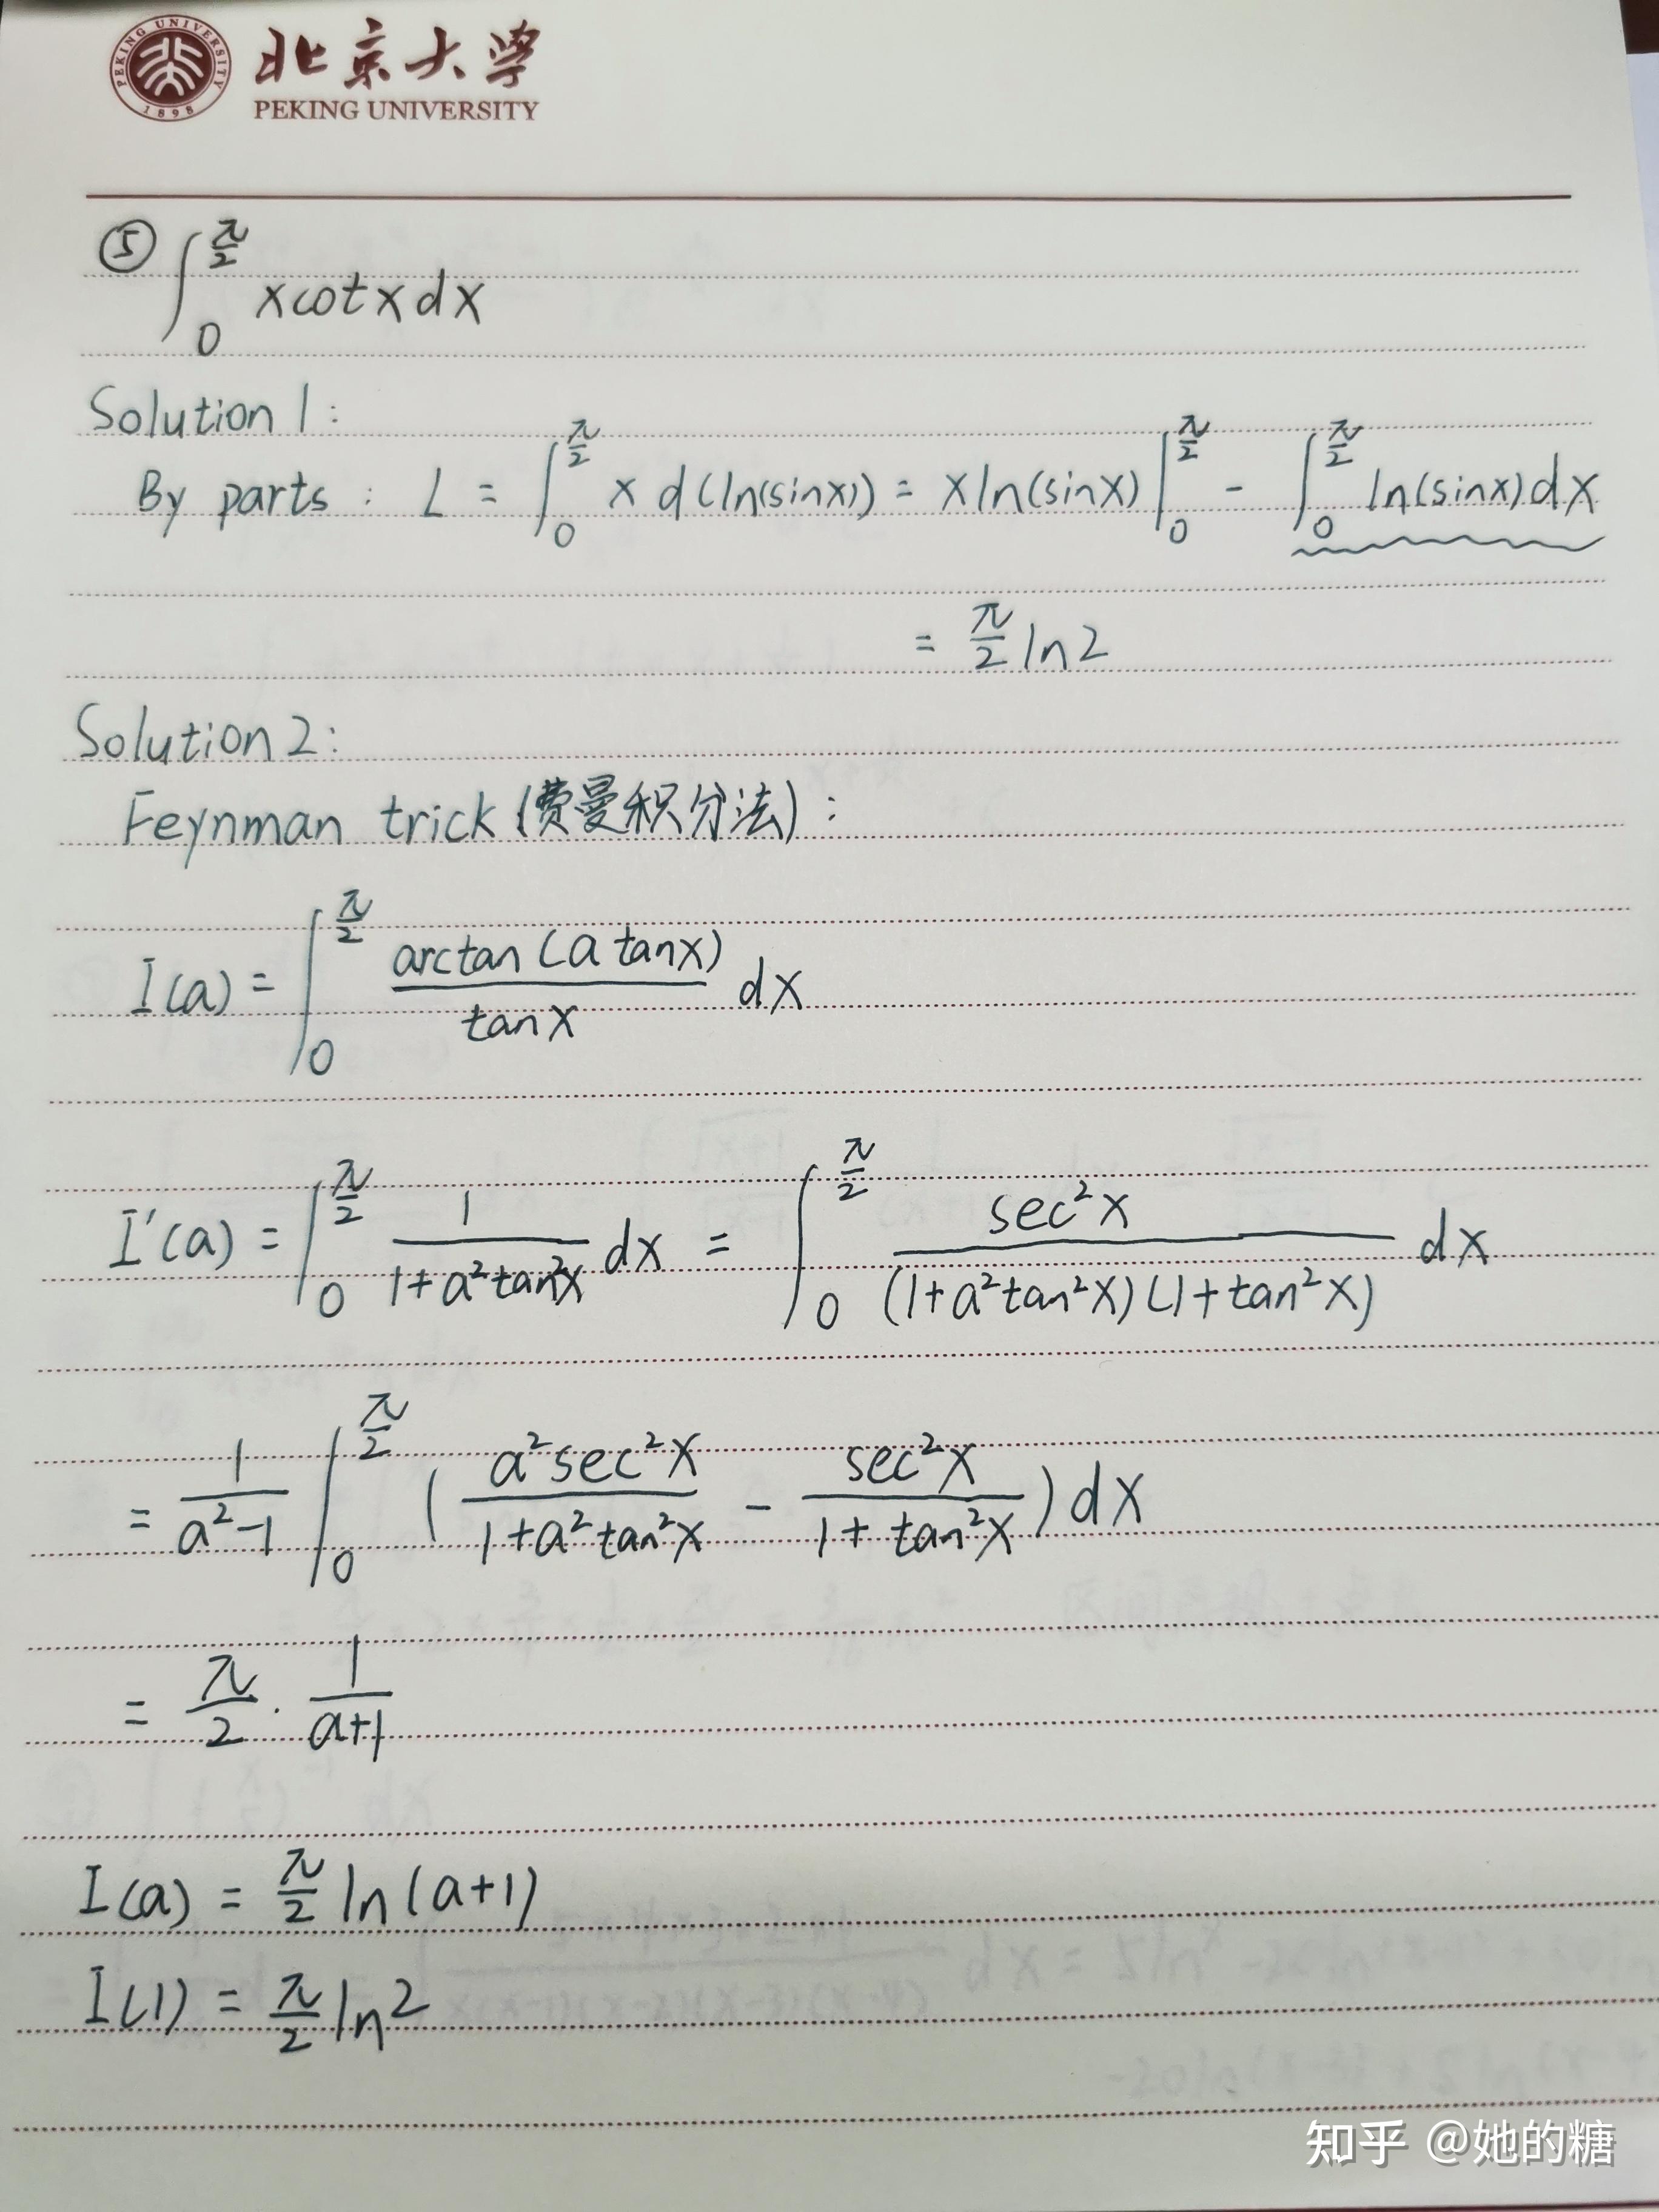 北京大学
PEKING UNIVERSITY
PEKING UNIVERSITY 1898
⑤ ∫₀^{π/2} x cot x dx
Solution 1:
By parts: L = ∫₀^{π/2} x d(ln(sinx)) = xln(sinx)|₀^{π/2} - ∫₀^{π/2} ln(sinx)dx
= π/2 ln2
Solution 2:
Feynman trick (费曼积分法):
I(a) = ∫₀^{π/2} arctan(a tanx)/tanx dx
I'(a) = ∫₀^{π/2} 1/(1+a²tan²x) dx = ∫₀^{π/2} sec²x/((1+a²tan²x)(1+tan²x)) dx
= 1/(a²-1) ∫₀^{π/2} (a²sec²x/(1+a²tan²x) - sec²x/(1+tan²x)) dx
= π/2 · 1/(a+1)
I(a) = π/2 ln(a+1)
I(1) = π/2 ln2
知乎 @她的糖